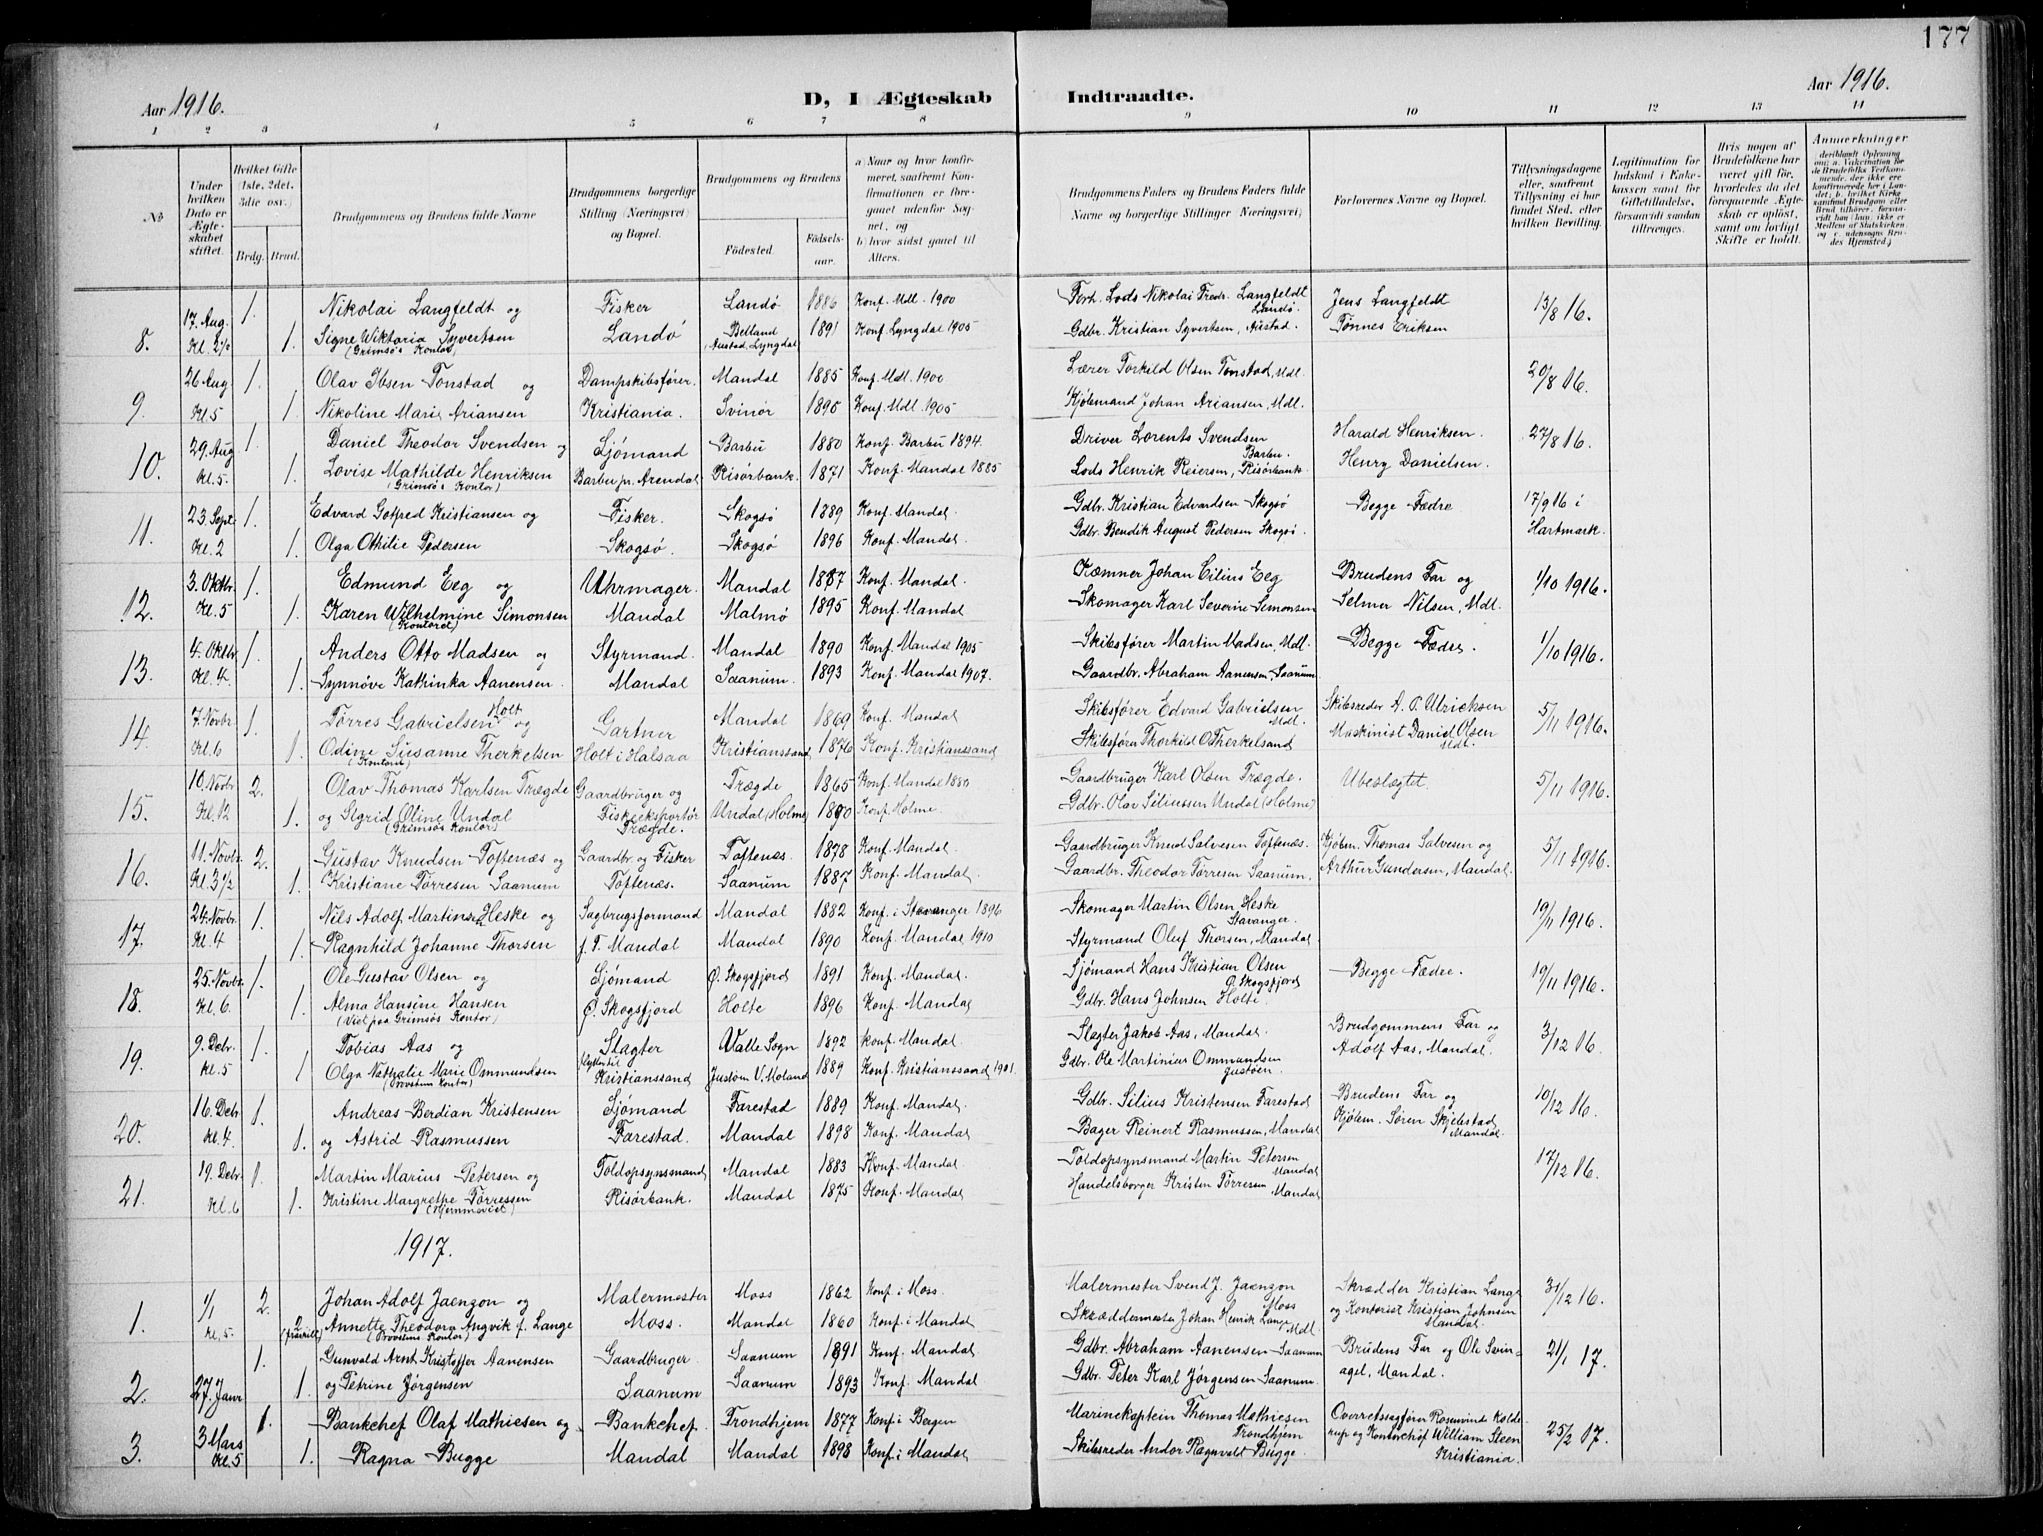 177
Aar 1916.
D, I Ægteskab
Indtraadte.
Aar 1916.
1 2 3 4 5 6 7 8 9 10 11 12 13 14
No
Under hvilken Dato er Ægteskabet stiftet.
Hvilket Gifte (1ste, 2det, 3die osv.)
Brdg. Brud.
Brudgommens og Brudens fulde Navne
Brudgommens borgerlige Stilling (Næringsvei) og Bopæl.
Brudgommens og Brudens
Födested. Födselsaar.
a) Naar og hvor konfirmeret, saafremt Konfirmationen er foregaaet udenfor Sognet, og
b) hvor sidst gaaet til Alters.
Brudgommens Faders og Brudens Faders fulde Navne og borgerlige Stillinger (Næringsvei)
Forlovernes Navne og Bopæl.
Tillysningsdagene eller, saafremt Tillysning ei har fundet Sted, efter hvilken Bevilling.
Legitimation for Indskud i Enkekassen samt for Giftetilladelse, forsaavidt saadan tiltrænges.
Hvis nogen af Brudefolkene har været gift før, hvorledes da det foregaaende Ægteskab er oplöst, samt om lovligt Skifte er holdt.
Anmærkninger
8. 17. Aug. 1. Nikolai Langfeldt og Fisker Landö 1886 Konf. Mdl. 1900 Forh. Lods Nikolai Fredr. Langfeldt Landö. Jens Langfeldt 13/8 16.
Kl. 2½ 1. Signe Wiktoria Syvertsen (Grimsös Kontor) Landö Belland (Austad, Lyngdal 1891 Konf. Lyngdal 1905 Gdbr. Kristian Syvertsen, Austad. Tønnes Eriksen
9. 26 Aug 1. Olav Ibsen Tonstad og Dampskibsfører. Mandal 1885 Konf. Mdl. 1900 Lærer Torkild Olsen Tonstad, Mdl. 20/8 16.
Kl. 5 1. Nikoline Marie Ariansen Kristiania. Svinör 1890 Konf. Mdl. 1905 Kjöbmand Johan Ariansen, Mdl.
10. 29. Aug 1. Daniel Theodor Svendsen og Sjömand Barbu 1880 Konf. Barbu 1894. Driver Lorents Svendsen Barbu. Harald Henriksen. 27/8 16.
Kl. 5. 1. Lovise Mathilde Henriksen (Grimsös Kontor) Barbu pr. Arendal Risörbank. 1871 Konf. Mandal 1885 Lods Henrik Reiersen, Risörbank. Henry Danielsen.
11. 23. Sept. 1. Edvard Gotfred Kristiansen og Fisker. Skogsö 1889 Konf. Mandal. Gdbr. Kristian Edvardsen Skogsö Begge Fædre 17/9 16 i
Kl. 2 1. Olga Othilie Pedersen Skogsö. Skogsö 1896 Konf. Mandal. Gdbr. Bendik August Pedersen Skogsö. Hartmark.
12. 3. Oktbr. 1. Edmund Eeg og Uhrmager. Mandal 1887 Konf. Mandal. Kæmner Johan Cilius Eeg Brudens Far og 1/10 1916.
Kl. 5 1. Karen Wilhelmine Simonsen (Kontoret) Mandal Malmø 1895 Konf. Mandal Skomager Karl Severin Simonsen Selmer Nilsen, Mdl.
13. 4. Oktbr 1. Anders Otto Madsen og Styrmand. Mandal 1890 Konf. Mandal 1905 Skibsfører Martin Madsen, Mdl. Begge Fædre. 1/10 1916.
Kl. 4. 1. Synnöve Kathinka Aanensen. Mandal Saanum. 1893 Konf. Mandal 1907. Gaardbr. Abraham Aanensen, Saanum
14. 7. Novbr. 1. Tørres Gabrielsen Holt og Gartner Mandal 1869 Konf. Mandal Skibsfører Edvard Gabrielsen Mdl. Skibsreder A. P. Ulrichsen 5/11 1916.
Kl. 6 1. Odine Susanne Therkelsen (Kontoret) Holt i Halsaa Kristianssand 1876 Konf. Kristianssand Skibsfører Thorkild O Therkelsand Maskinist Daniel Olsen Mdl.
15. 10. Novbr 2. Olav Thomas Karlsen Trægde Gaardbruger og Trægde 1865 Konf. Mandal 1880 Gaardbruger Karl Olsen Trægde. Ubeslægtet. 5/11 1916.
Kl. 12 1. og Sigrid Oline Undal (Grimsös Kontor) Fiskeeksportør Trægde. Undal (Holme) 1890 Konf. Holme. Gdbr. Olav Siliussen Undal (Holme)
16. 11. Novbr. 2. Gustav Knudsen Toftenæs og Gaardbr. og Fisker Toftenæs. 1878 Konf. Mandal. Gaardbruger Knud Salvesen Toftenæs. Kjöbm. Thomas Salvesen og 5/11 1916.
Kl. 3½ 1. Kristiane Tørresen Saanum Toftenæs. Saanum 1887 Konf. Mandal. Gaardbr. Theodor Tørresen Saanum. Arthur Gundersen, Mandal.
17. 24. Novbr. 1. Nils Adolf Martinsen Heske og Sagbrugsformand Mandal 1882 Konf. i Stavanger 1896 Skomager Martin Olsen Heske Stavanger. 19/11 1916.
Kl. 4 1. Ragnhild Johanne Thorsen f. T. Mandal Mandal 1890 Konf. Mandal 1910 Styrmand Oluf Thorsen, Mandal
18. 25. Novbr. 1. Ole Gustav Olsen og Sjömand Ø. Skogsfjord 1891 Konf. Mandal. Sjömand Hans Kristian Olsen Ø. Skogsfjord Begge Fædre. 19/11 1916.
Kl. 6. 1. Alma Hansine Hansen (Viet paa Grimsös Kontor) Ø. Skogsfjord Holte 1896 Konf. Mandal Gdbr. Hans Johnsen Holte.
19. 9. Debr. 1. Tobias Aas og Slagter Valle Sogn 1892 Konf. Mandal. Slagter Jakob Aas, Mandal. Brudgommens Far og 3/12 16.
Kl. 5 1 Olga Nathalie Marie Ommundsen (Provstens Kontor) flytter til Kristianssand Justøen V. Moland 1889 Konf. Kristianssand 1901. Gdbr. Ole Martinius Ommundsen Justøen. Adolf Aas, Mandal.
20. 16. Debr. 1. Andreas Berdian Kristensen Sjömand Farestad 1889 Konf. Mandal. Gdbr. Silius Kristensen Farestad Brudens Far og 10/12 16.
Kl. 4. 1. og Astrid Rasmussen Farestad. Mandal 1898 Konf. Mandal Bager Reinert Rasmussen, Mandal Kjöbm. Søren Skjebstad Mandal.
21. 19. Debr. 1. Martin Marius Petersen og Toldopsynsmand Mandal 1883 Konf. Mandal. Toldopsynsmand Martin Petersen Mandal 17/12 16.
Kl. 6 1. Kristine Margrethe Tørressen (Hjemmeviet) Risörbank. Mandal 1875 Konf. Mandal Handelsborger Kristen Tørresen Mandal
1917.
1. 1/1 2. Johan Adolf Jaenzon og Malermester Moss 1862 Konf. i Moss. Malermester Svend J. Jaenzon Moss Skrædder Kristian Lange 31/12 16.
Kl. 5. 2 (fraskilt) Annette Theodora Angvik f. Lange (Provstens Kontor) Moss. Mandal 1860 Konf. i Mandal Skræddermester Johan Henrik Lange Mdl. og Kontorist Kristian Johnsen Mandal.
2. 27. Janr 1. Gunvald Arnt Kristoffer Aanensen Gaardbruger Saanum 1891 Konf. Mandal. Gdbr. Abraham Aanensen Saanum Brudens Far og Ole Svin- 21/1 17.
1. og Petrine Jørgensen Saanum Saanum 1893 Konf. Mandal Gdbr. Peter Karl Jørgensen Saanum. agel, Mandal.
3. 3 Mars 1. Bankchef Olaf Mathiesen og Bankchef. Trondhjem 1877 Konf. i Bergen Marinekaptein Thomas Mathiesen Trondhjem Overretssagfører Rosenvinde Kolde- 25/2 17.
Kl. 5 1. Ragna Bugge Mandal Mandal 1898 Konf. i Mandal Skibsreder Andor Ragnvald Bugge rup og Kontorchef William Steen Kristiania.